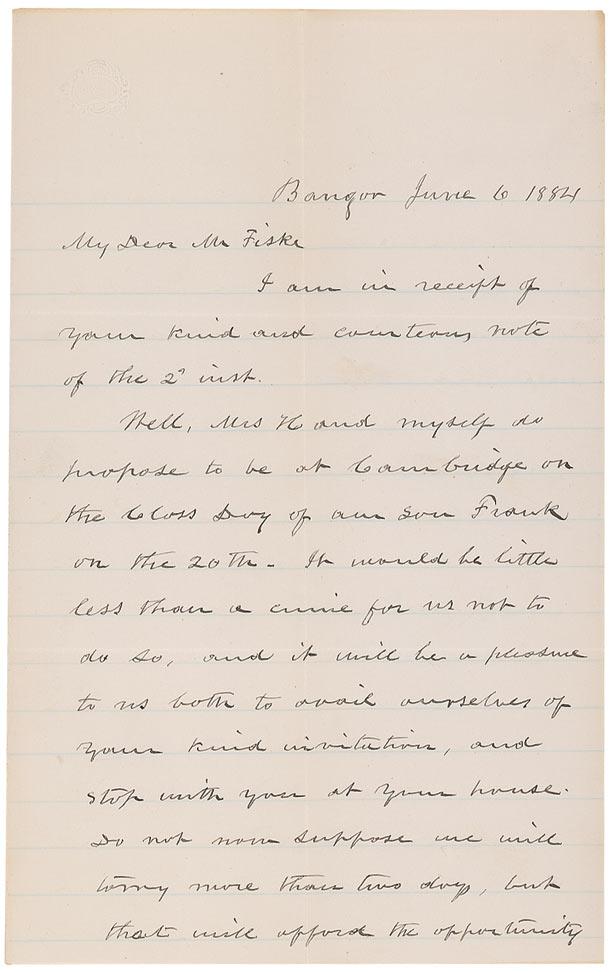 Bangor June 6 1884
My Dear Mr Fiske
I am in receipt of
your kind and courteous note
of the 2d inst.
Well, Mrs H and myself do
propose to be at Cambridge on
the Class Day of our son Frank
on the 20th - It would be little
less than a crime for us not to
do so, and it will be a pleasure
to us both to avail ourselves of
your kind invitation, and
stop with you at your house.
Do not now suppose we will
tarry more than two days, but
that will afford the opportunity